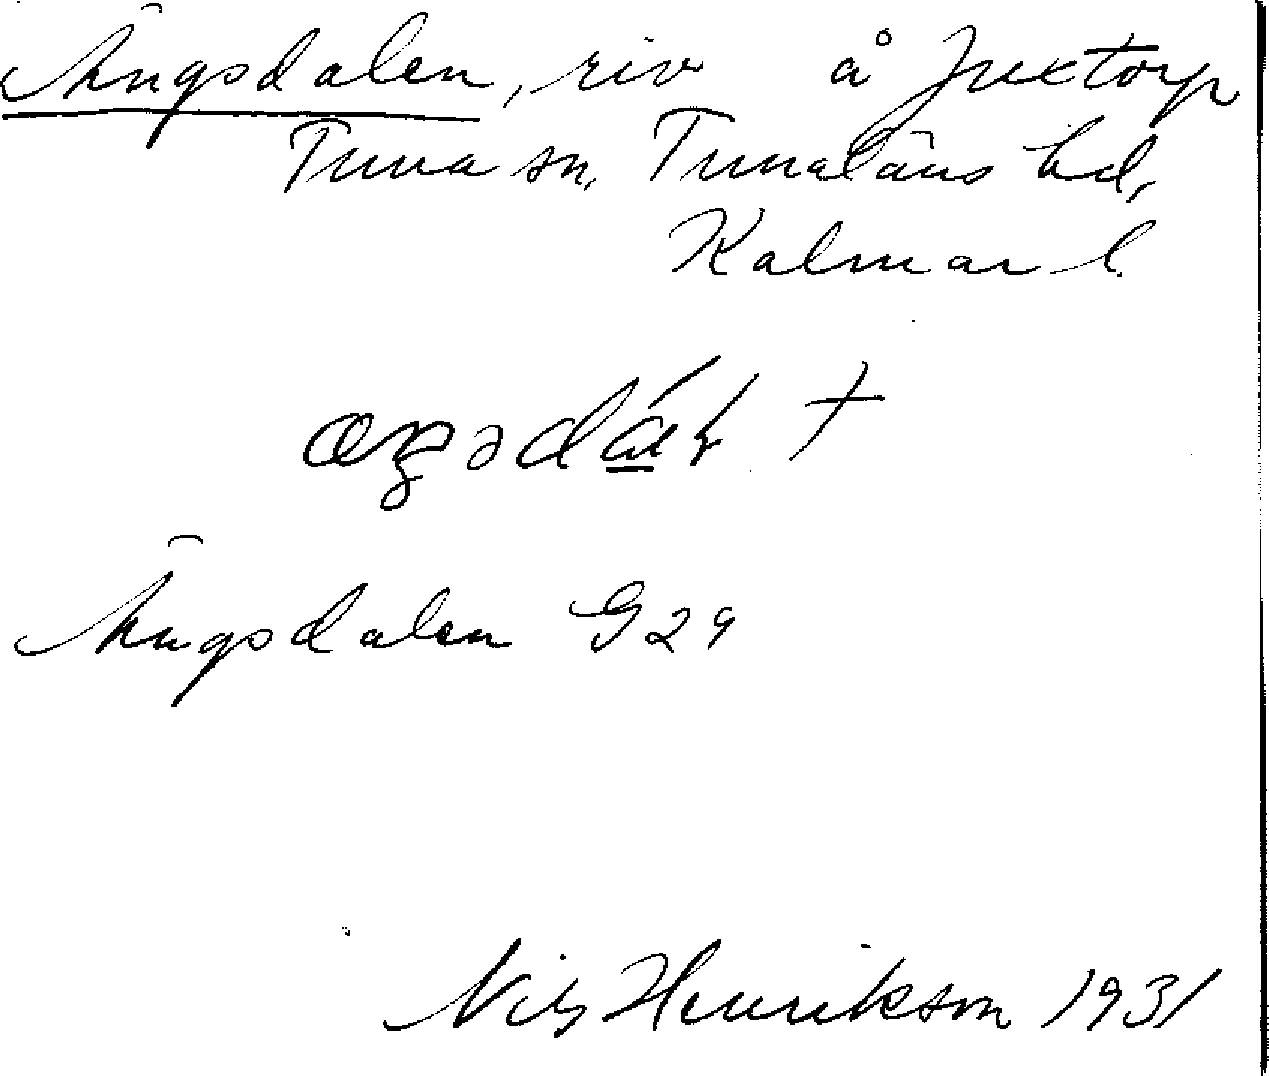 Ängsdalen, riv å Juxtorp
Tuna sn, Tunaläns hd,
Kalmar l.
Ängsdalen G29
Nils Henrikson 1931